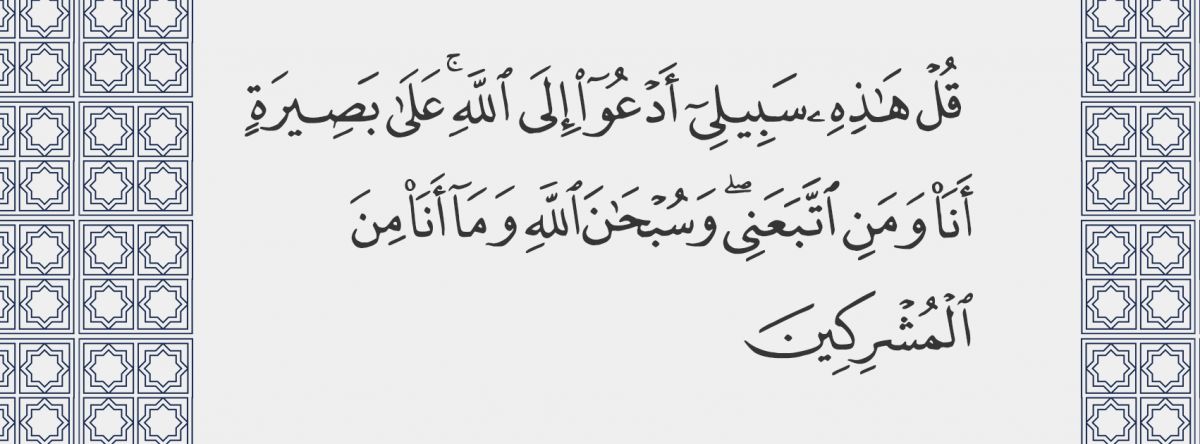 قُلۡ هَٰذِهِۦ سَبِيلِيٓ أَدۡعُوٓاْ إِلَى ٱللَّهِۚ عَلَىٰ بَصِيرَةٍ
أَنَا۠ وَمَنِ ٱتَّبَعَنِيۖ وَسُبۡحَٰنَ ٱللَّهِ وَمَآ أَنَا۠ مِنَ
ٱلۡمُشۡرِكِينَ